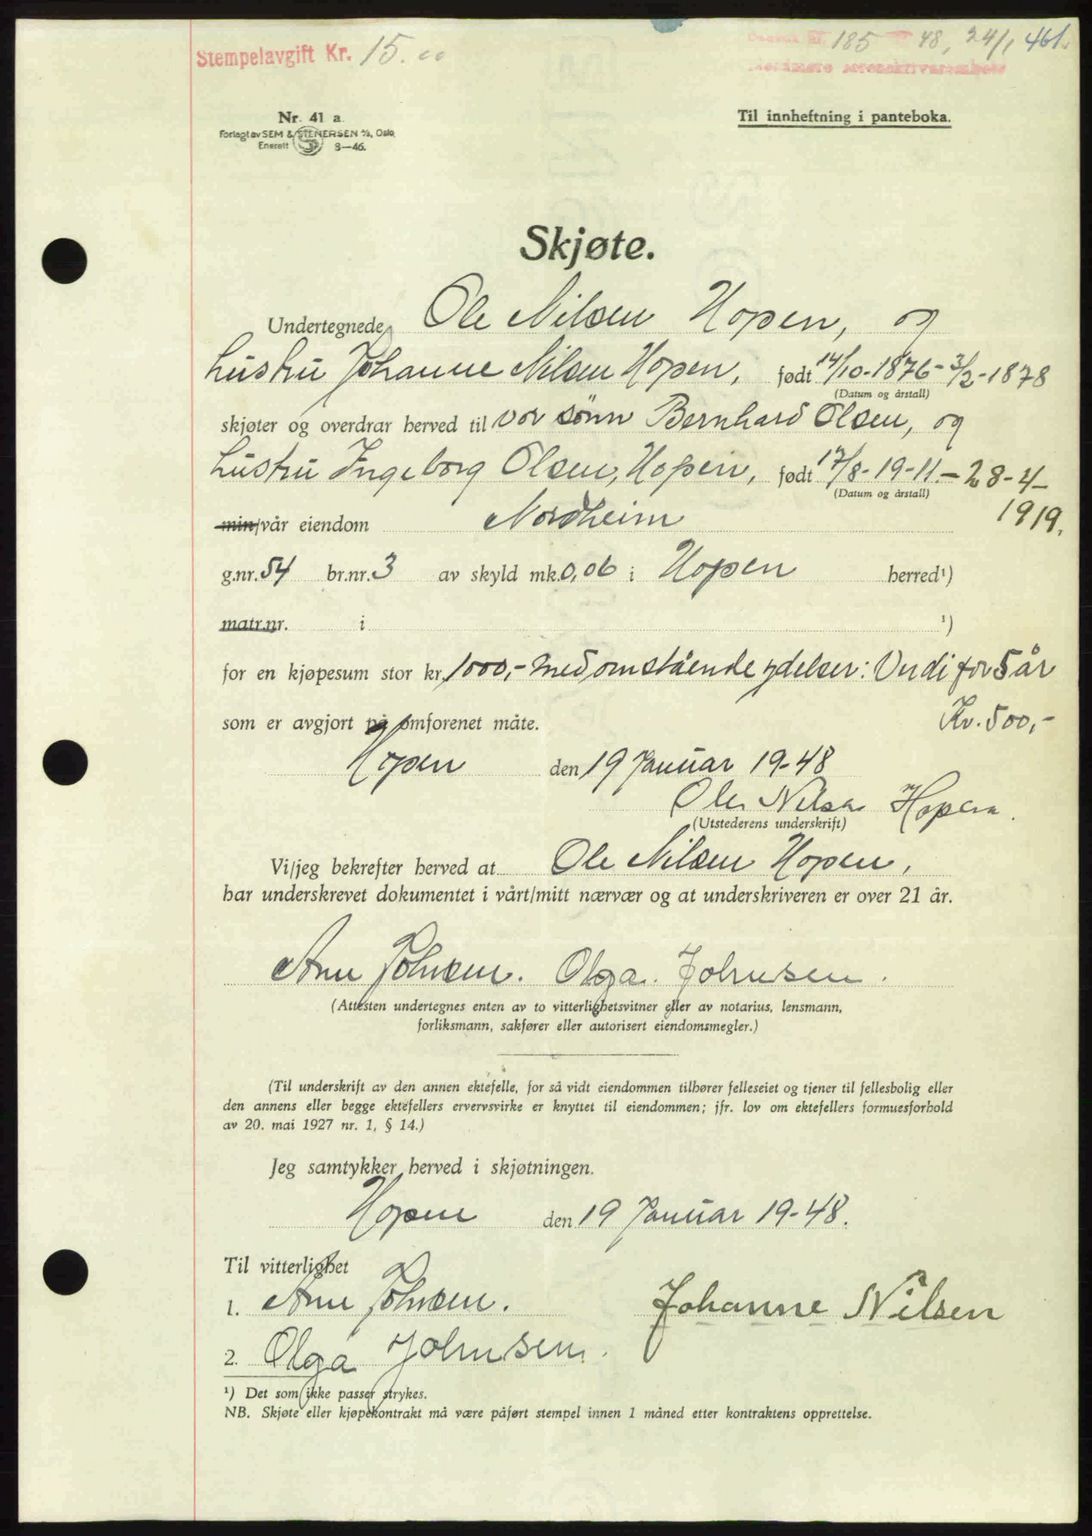 Stempelavgift Kr. 15.00
Dagbok nr. 185 48, 24/1 461.
Nordmøre sorenskriverembete
Nr. 41 a.
Forlagt av SEM & STENERSEN A/S, Oslo
Enerett 8—46.
Til innheftning i panteboka.
Skjøte.
Undertegnede Ole Nilsen Hopen, og
hustru Johanne Nilsen Hopen, født 14/10-1876-3/2-1878
(Datum og årstall)
skjøter og overdrar herved til vor sønn Bernhard Olsen, og
hustru Ingeborg Olsen, Hopen, født 17/8-19-11-28-4-
(Datum og årstall)
1919.
min/vår eiendom Nordheim
g.nr. 54 br.nr. 3 av skyld mk. 0,06 i Hopen herred¹)
matr.nr. i ¹)
for en kjøpesum stor kr. 1000,- med omstående ydelser: Verdi for 5 år
Kr. 500,-
som er avgjort på omforenet måte.
Hopen den 19 Januar 19-48
Ole Nilsen Hopen.
(Utstederens underskrift)
Vi/jeg bekrefter herved at Ole Nilsen Hopen,
har underskrevet dokumentet i vårt/mitt nærvær og at underskriveren er over 21 år.
Arne Johnsen. Olga Johnsen.
(Attesten undertegnes enten av to vitterlighetsvitner eller av notarius, lensmann,
forliksmann, sakfører eller autorisert eiendomsmegler.)
(Til underskrift av den annen ektefelle, for så vidt eiendommen tilhører felleseiet og tjener til fellesbolig eller
den annens eller begge ektefellers ervervsvirke er knyttet til eiendommen; jfr. lov om ektefellers formuesforhold
av 20. mai 1927 nr. 1, § 14.)
Jeg samtykker herved i skjøtningen.
Hopen den 19 Januar 19-48.
Til vitterlighet
1. Arne Johnsen. Johanne Nilsen
2. Olga Johnsen.
¹) Det som ikke passer strykes.
NB. Skjøte eller kjøpekontrakt må være påført stempel innen 1 måned etter kontraktens opprettelse.